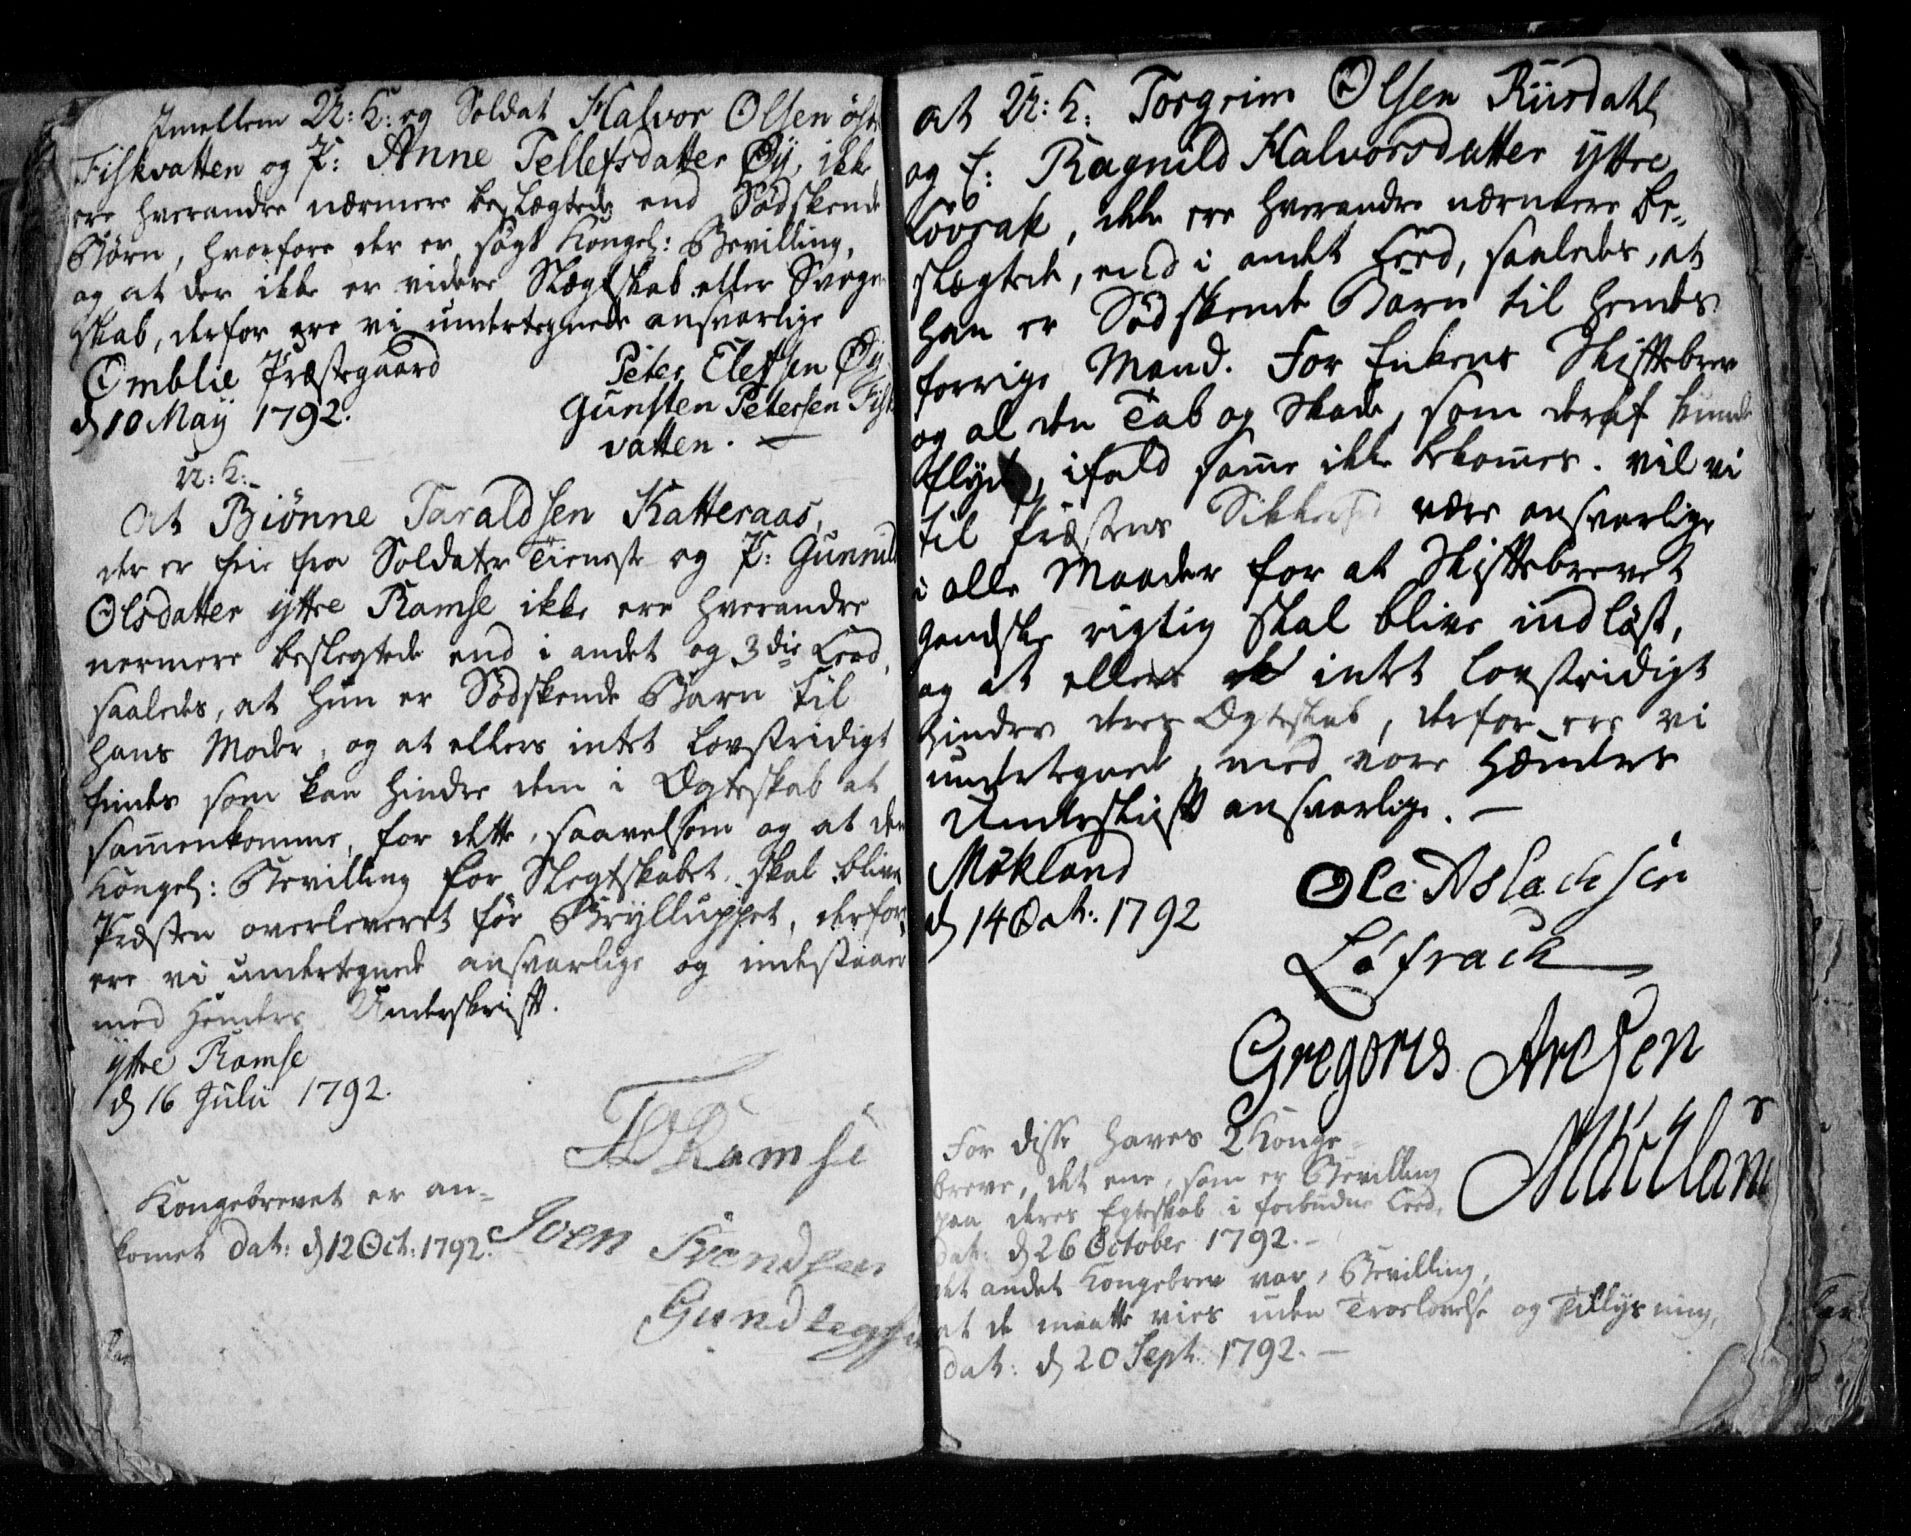 Imellem U: K: og Soldat Halvor Olsen
Fiskvatten og P: Anne Tellefsdatter Øÿ, ikke
ere hverandre nærmere beslægtede end Södskende
Börn, hvorfore der er sögt Kongel: Bevilling,
og at der ikke er videre Slægtskab eller Svoger
skab, derfor ere vi undertegnede ansvarlige
Omblie Præstegaard
d 10 Maÿ 1792.
Peter Elefsen Øÿ
Gunsten Petersen Fisk
vatten. —
U: K:
At Biönne Taraldsen Katteraas,
der er frie fra Soldater Tieneste og P: Gunnild
Olsdatter ÿttre Ramse ikke ere hverandre
nermere beslegtede end i andet og 3die Leed,
saaledes, at hun er Södskende Barn til
hans Moder, og at ellers intet lovstridigt
findes som kan hindre dem i Ægteskab at
sammenkomme, for dette, saavelsom og at den
Kongel: Bevilling for Slegtskabet skal blive
Præsten overleveret för Brÿlluppet, derfor
ere vi undertegnede ansvarlige og indestaaer
med Hænders Underskrift.
ÿttre Ramse
d 16 Julii 1792.
Ramse
Kongebrevet er an=
komet dat: d 12 Oct: 1792.
Iven Svendsen
at U: K: Torgrim Olsen Riisdahl
og E: Ragnild Halvorsdatter ÿttre
Lövrak, ikke ere hverandre nærmere be=
slægtede, end i andet Leed, saaledes, at
han er Södskende Barn til hendes
forrige Mand. For Enkens Skiftebrev
og al den Tab og Skade, som deraf kunde
flyde, ifald samme ikke bekommes. vil vi
til Præstens Sikkerhed være ansvarlige
i alle Maader for at Skiftebrevet
gandske rigtig skal blive indlöst,
og at ellers intet lovstridigt
hindrer deres Ægteskab, derfor ere vi
undertegnede, med vore Hænders
Underskrift ansvarlige. —
Mökland
d 14 Oct: 1792
Ole Aslachsen
Löfrack
Gregoris Aresen
Möcklan
For disse haves 2 Konge
breve, det ene, som er Bevilling
paa deres Egteskab i forbudne Leed,
dat: d 26 October 1792. —
det andet Kongebrev var, Bevilling,
at de maatte vies uden Troelovelse og Tillysning,
dat: d 20 Sept: 1792. —